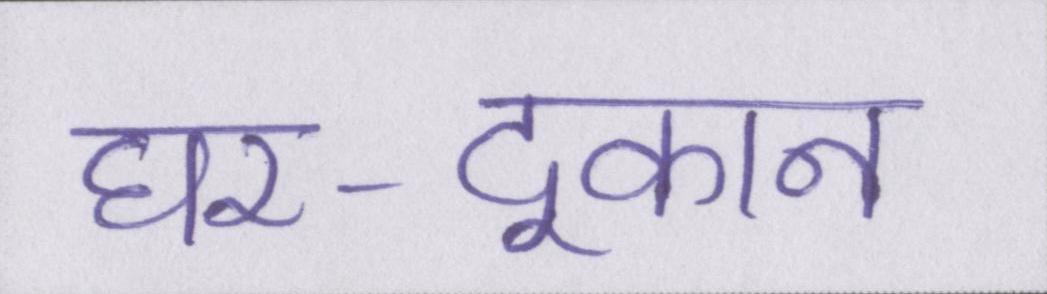 घर-दूकान